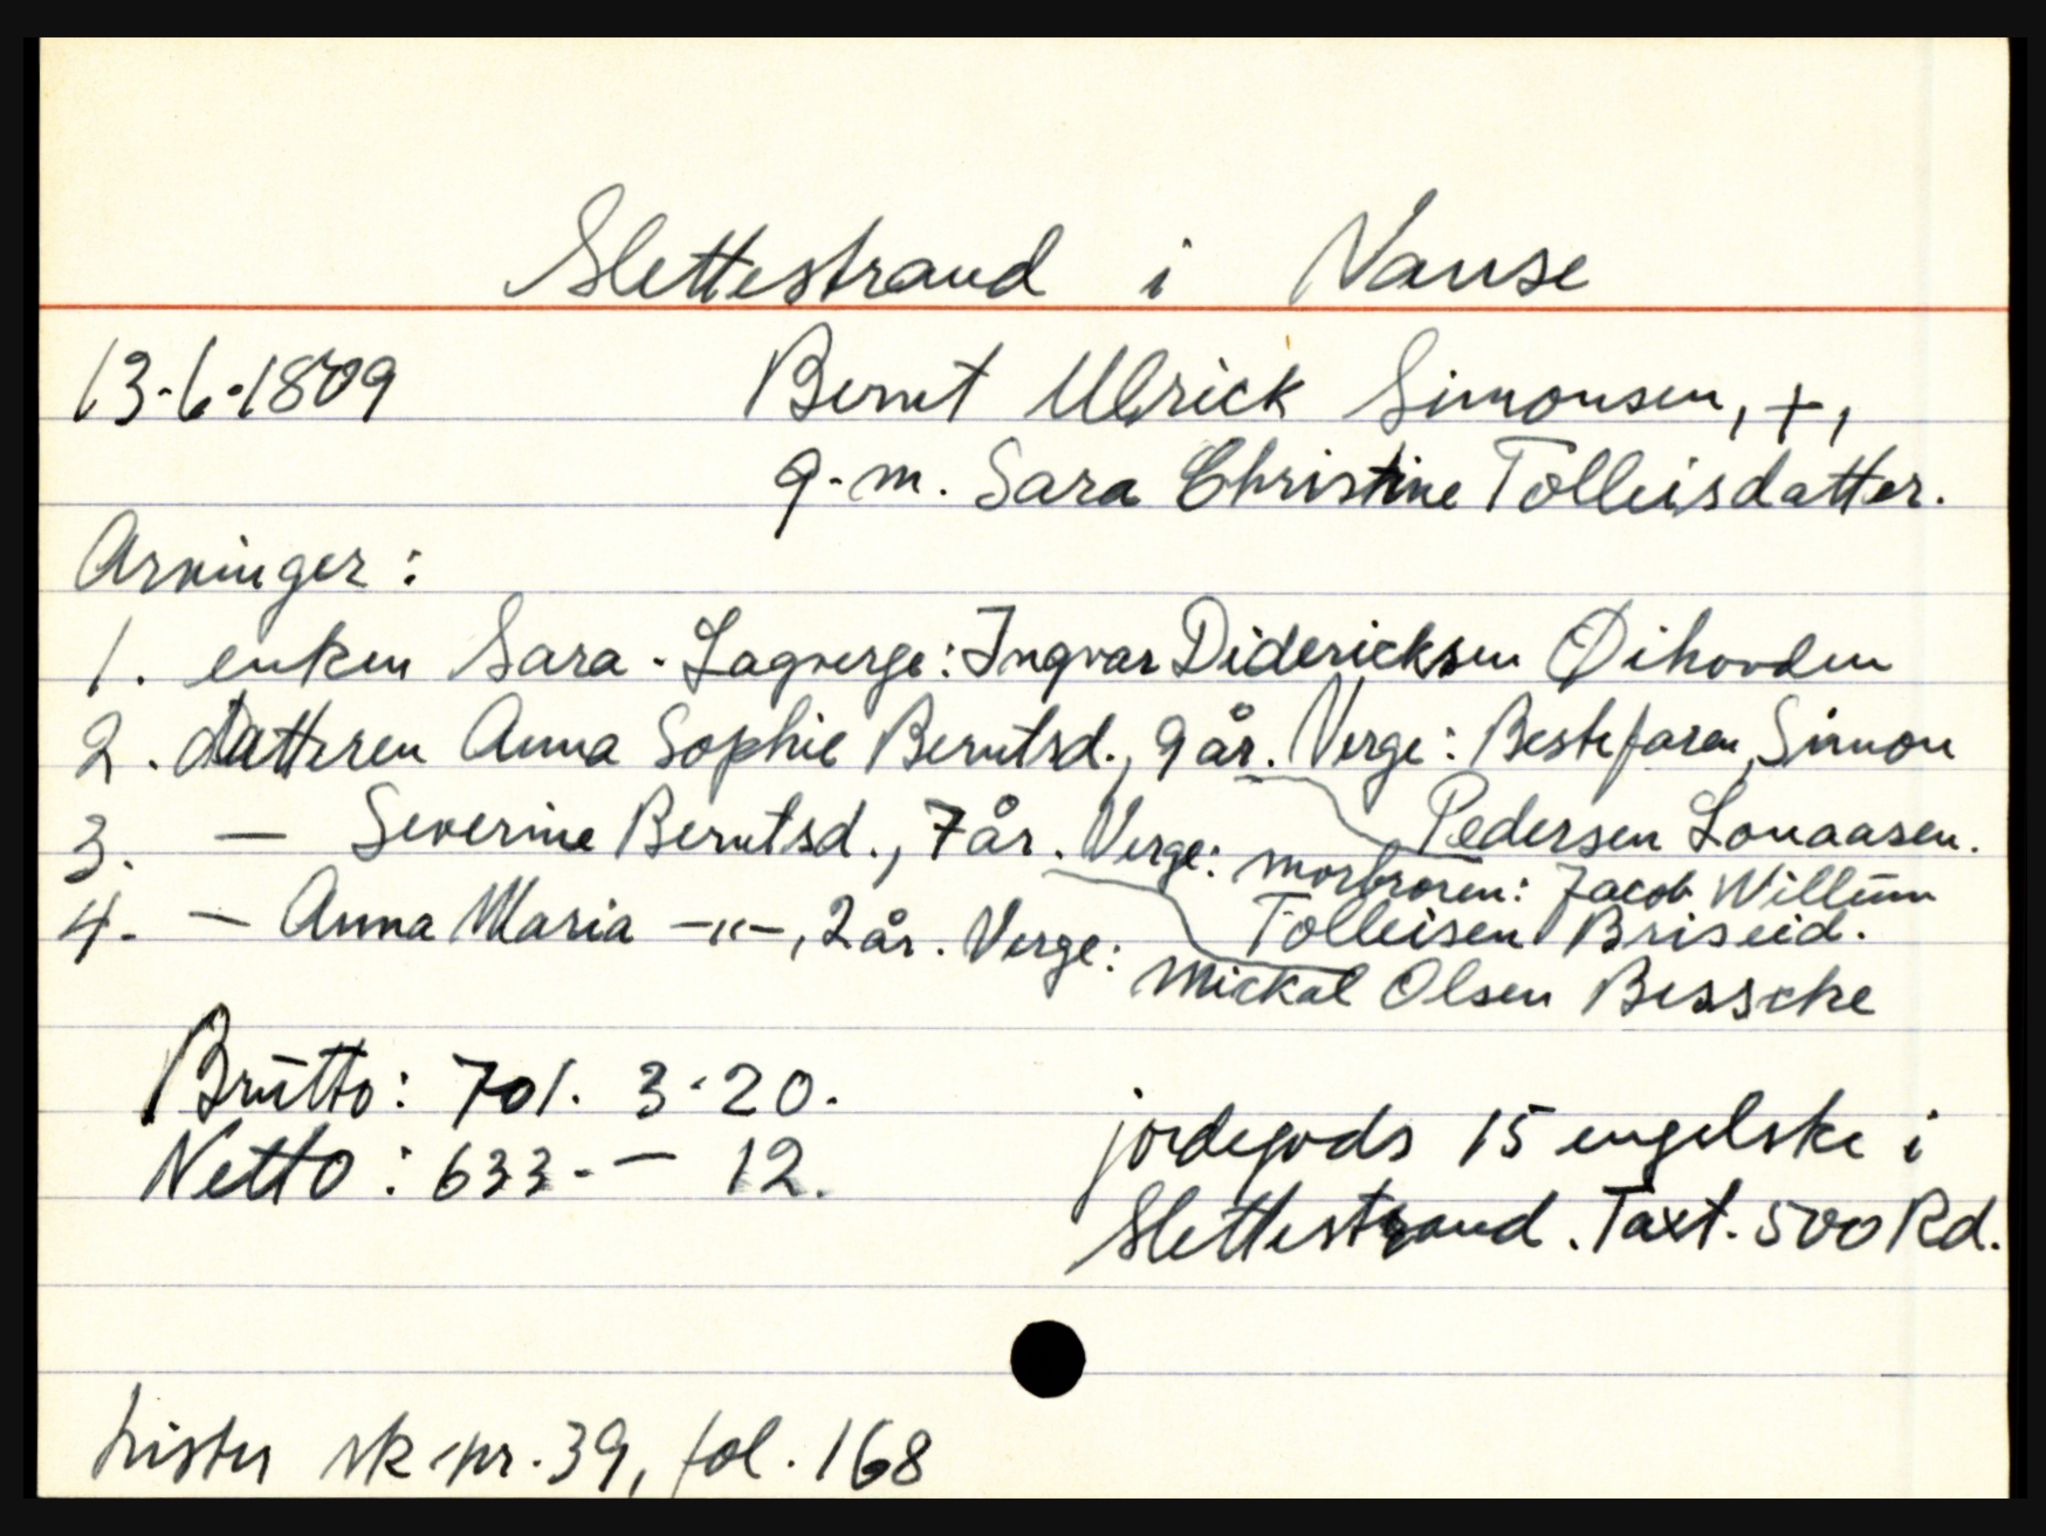 Slettestrand i Vanse
13-6-1809 Bernt Ulrick Simonsen, +,
g.m. Sara Christine Tolleisdatter.
Arvinger:
1. enken Sara - Lagverge: Ingvar Didericksen Øihovden
2. datteren Anna Sophie Berntsd., 9 år. Verge: Bestefaren, Simon
Pedersen Lonaasen.
3. — Severine Berntsd., 7 år. Verge: morbroren: Jacob Willum
Tolleisen Briseid.
4. — Anna Maria —"—, 2 år. Verge:
Mickal Olsen Bessche
Brutto: 701. 3-20.
Netto: 633. — 12.
jordegods 15 engelske i
Slettestrand. Taxt. 500 Rd.
Lister sk.pr. 39, fol. 168